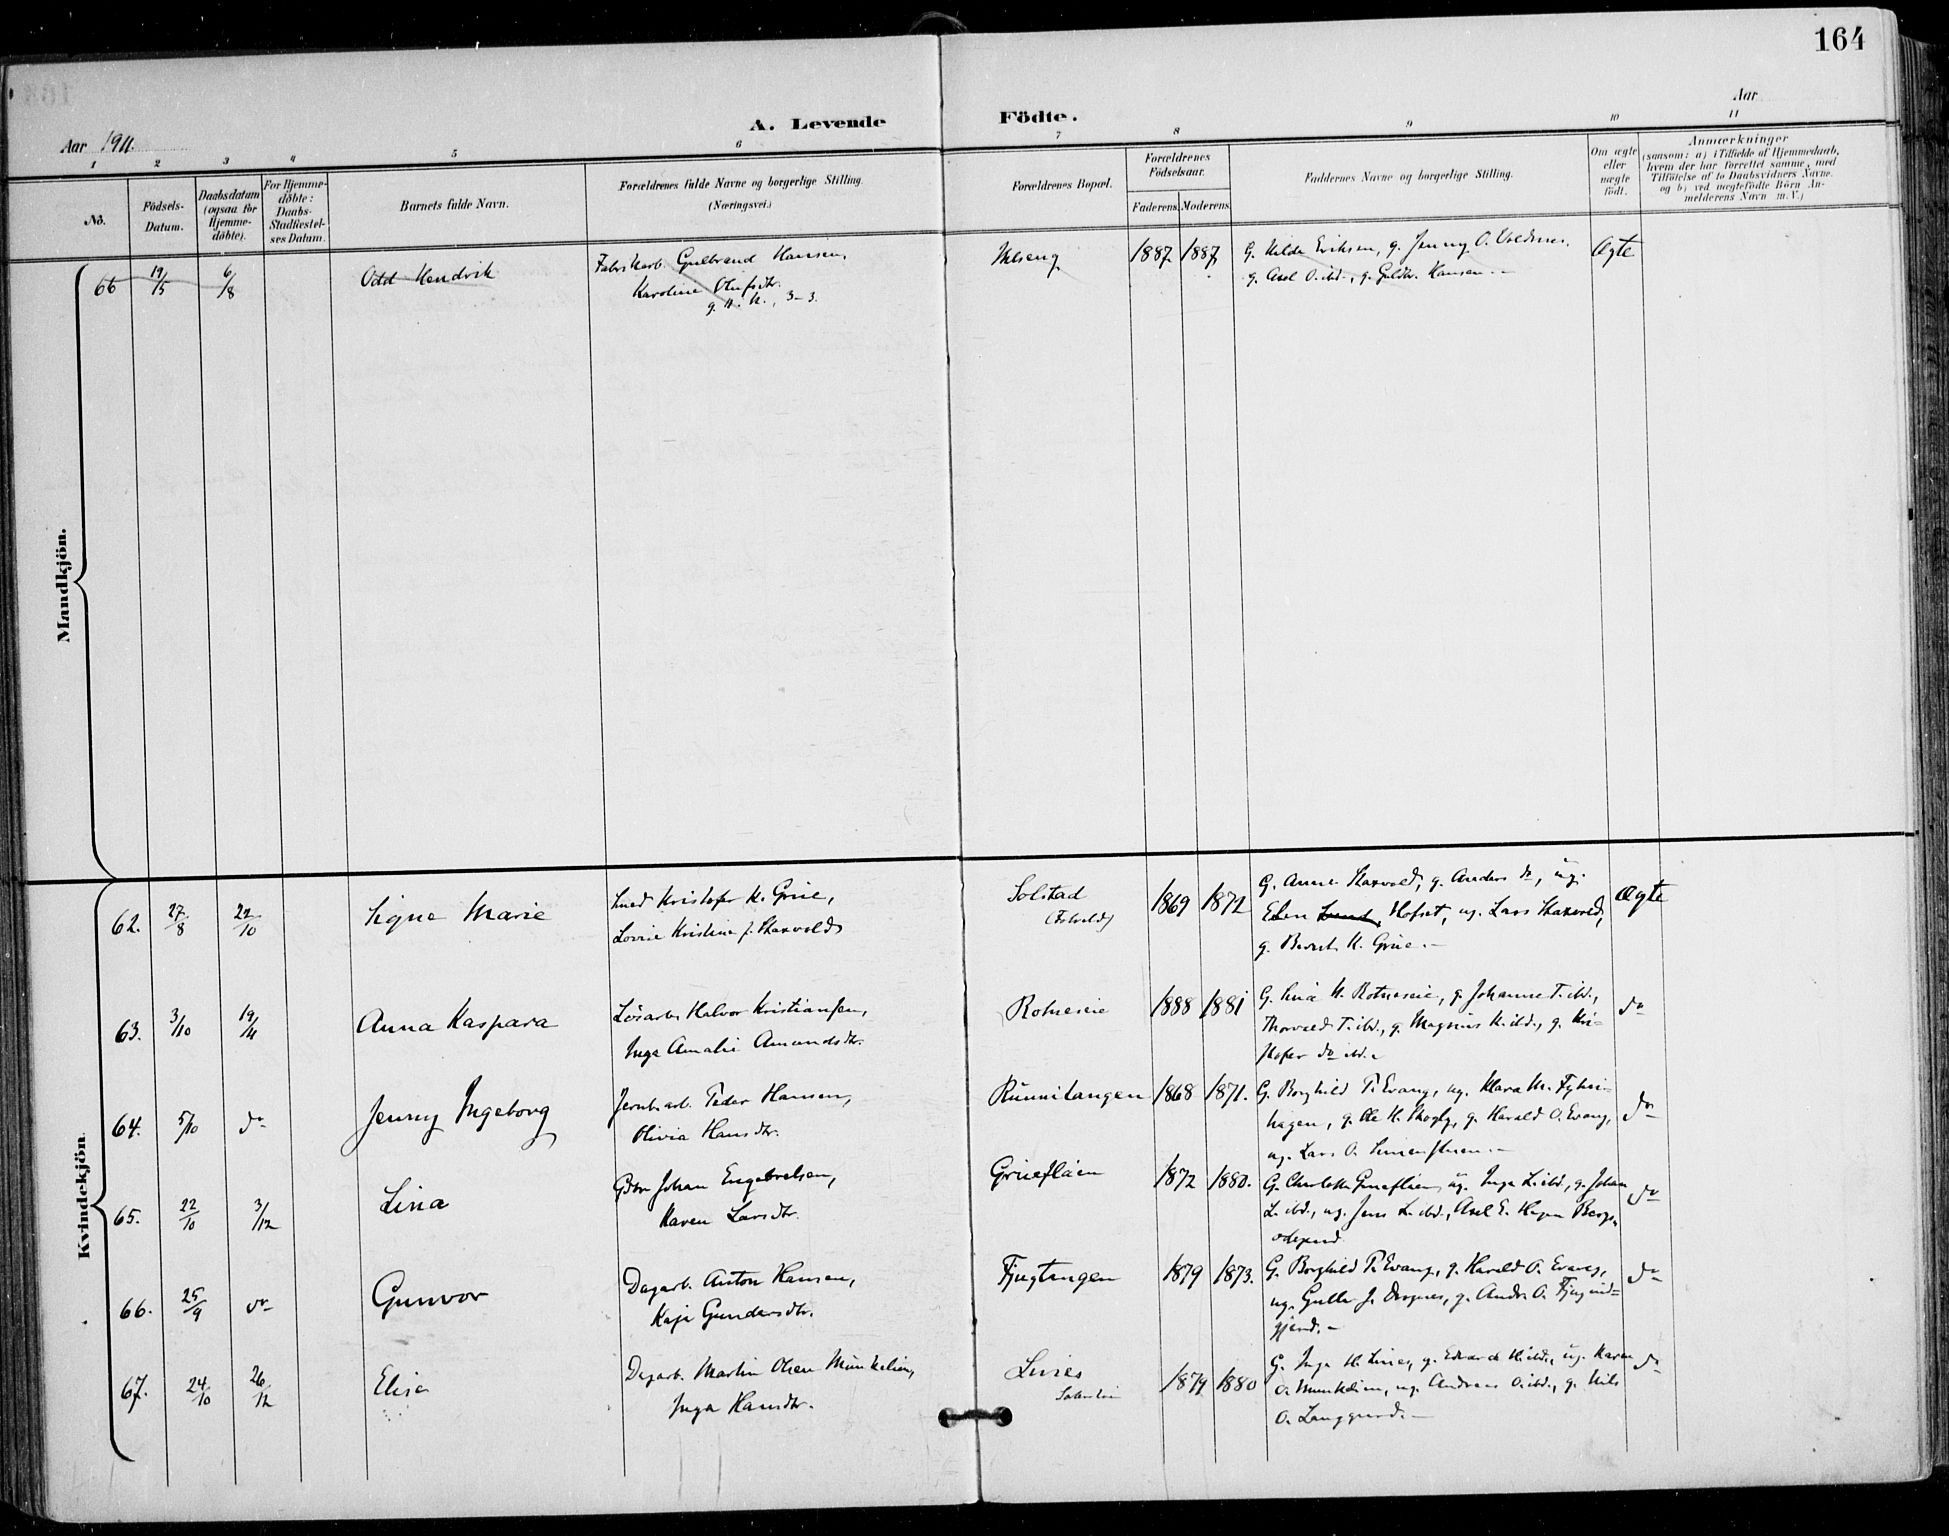 164
Aar 1911.
A. Levende Födte.
Aar
1 2 3 4 5 6 7 8 9 10 11
No.
Födsels-Datum.
Daabsdatum (ogsaa for Hjemme-döbte).
For Hjemme-döbte: Daabs-Stadfæstel-ses Datum.
Barnets fulde Navn.
Forældrenes fulde Navne og borgerlige Stilling.
(Næringsvei.)
Forældrenes Bopæl.
Forældrenes Födselsaar.
Faderens Moderens
Faddernes Navne og borgerlige Stilling.
Om ægte eller uægte födt.
Anmærkninger
(saasom: a) i Tilfælde af Hjemmedaab,
hvem der har forrettet samme, med
Tilföielse af to Daabsvidners Navne,
og b) ved uægtefödte Börn An-
melderens Navn m. V.)
Mandkjön.
66 19/5 6/8 Odd Hendrik
Gulbrand Hansen,
Karoline Olufsdtr.
1887 1887
g. Jenny O.
g. Axel O. ibd., g. Guldbr. Hansen.
Ægte
Kvindekjön.
62. 27/8 22/10 Signe Marie
Kristofer K. Grue,
Lovise Kristine f. Skarvold
Solstad
1869 1872
G. Anne Skarvold, g. Anders do, ug.
Lund Hofset, ug. Lars Skarvold,
g. Bernt K. Grue.
Ægte
63. 3/10 19/11 Anna Kaspara
Lösarb. Halvor Kristiansen,
Inga Amalie Amundsdtr.
Rotneseie
1888 1881
G. H. Rotneseie, g. Johanne T. ibd.,
Thorvald T. ibd., g. Magnus K. ibd., g. Kri-
stofer do ibd.
do
64. 5/10 do Jenny Ingeborg
Jernb.arb. Peder Hansen,
Olivia Hansdtr.
Rünnitangen
1868 1871.
G. Borghild P. Evang, ug. Klara M.
hagen, g. Ole H. g. Harald O. Evang,
ug. Lars O.
do
65. 22/10 3/12 Lina
Gbr. Johan Engebretsen,
Karen Larsdtr.
Grüeflaen
1872 1880.
G. Charlotte Grueflaen, ug. Inga L. ibd., g. Johan
L. ibd., ug. Jens L. ibd., Axel E. Hagen
do
66. 25/9 do Gunvor
Dagarb. Anton Hansen,
Kaja Gundersdtr.
Tjugtangen
1879 1873.
G. Borghild P. Evang, g. Harald O. Evang,
g. Andr. O.
do
67. 24/10 26/12 Elise
Dagarb. Martin Olsen Munkelien,
Inga Hansdtr.
Lines
1879 1880
G. Inga H. Lines, g. Edvard H. ibd., ug. Karen
O. Munkelien, ug. Andreas O. ibd., g. Nils
O. Langgaard.
do